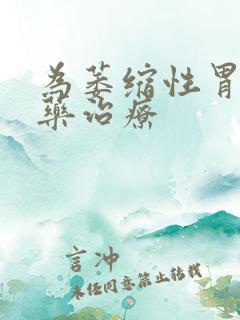 為萎缩性胃
藥治療
言冲
未经同意禁止转载